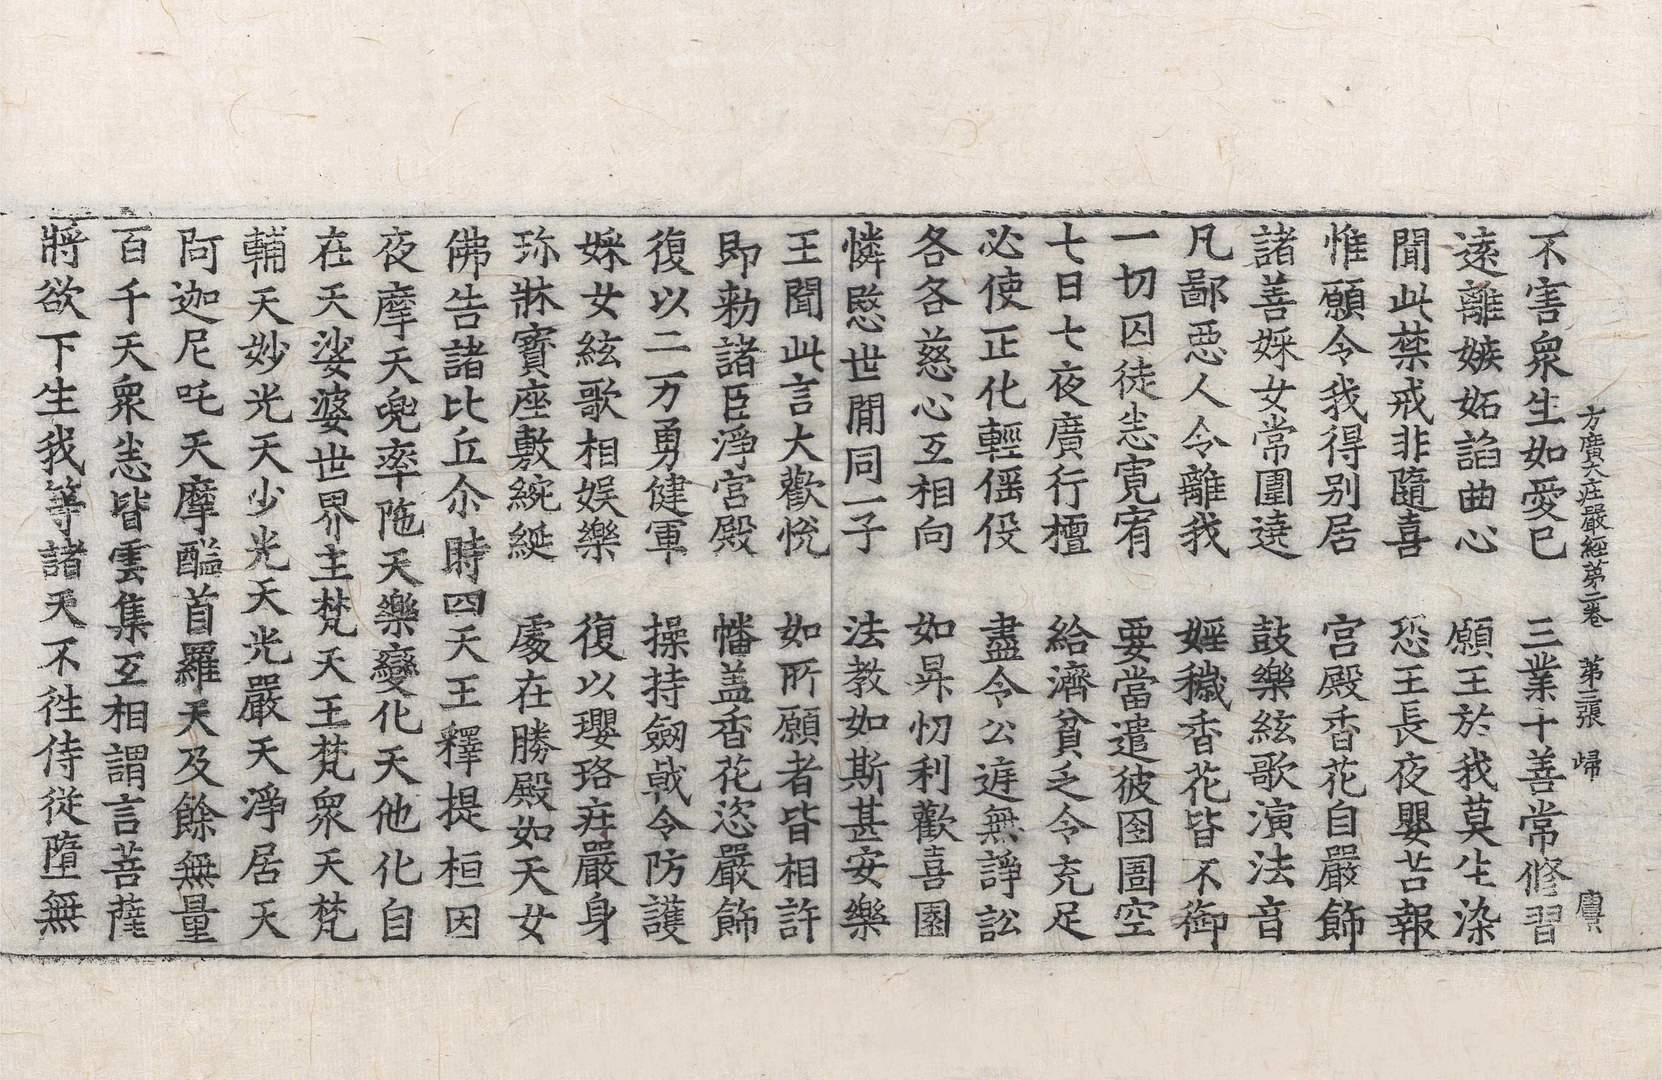 方廣大莊嚴經第二卷 第三張 歸
不害衆生如愛已 三業十善常修習
遠離嫉妬諂曲心 願王於我莫生染
聞此禁戒非隨喜 恐王長夜嬰苦報
惟願令我得別居 宮殿香花自嚴飾
諸善婇女常圍遶 鼓樂絃歌演法音
凡鄙惡人令離我 婬穢香花皆不御
一切囚徒悉寬宥 要當遣彼囹圄空
七日七夜廣行檀 給濟貧乏令充足
必使正化輕徭役 盡令公庭無諍訟
各各慈心互相向 如昇忉利歡喜園
憐愍世間同一子 法教如斯甚安樂
王聞此言大歡悅 如所願者皆相許
即勑諸臣淨宮殿 幡盖香花恣嚴飾
復以二万勇健軍 操持劒戟令防護
婇女絃歌相娛樂 復以瓔珞莊嚴身
珎牀寶座敷綩綖 處在勝殿如天女
佛告諸比丘尒時四天王釋提桓因
夜摩天兜率陁天樂變化天他化自
在天娑婆世界主梵天王梵衆天梵
輔天妙光天少光天光嚴天淨居天
阿迦尼吒天摩醯首羅天及餘無量
百千天衆悉皆雲集互相謂言菩薩
將欲下生我等諸天不徃侍從墮無